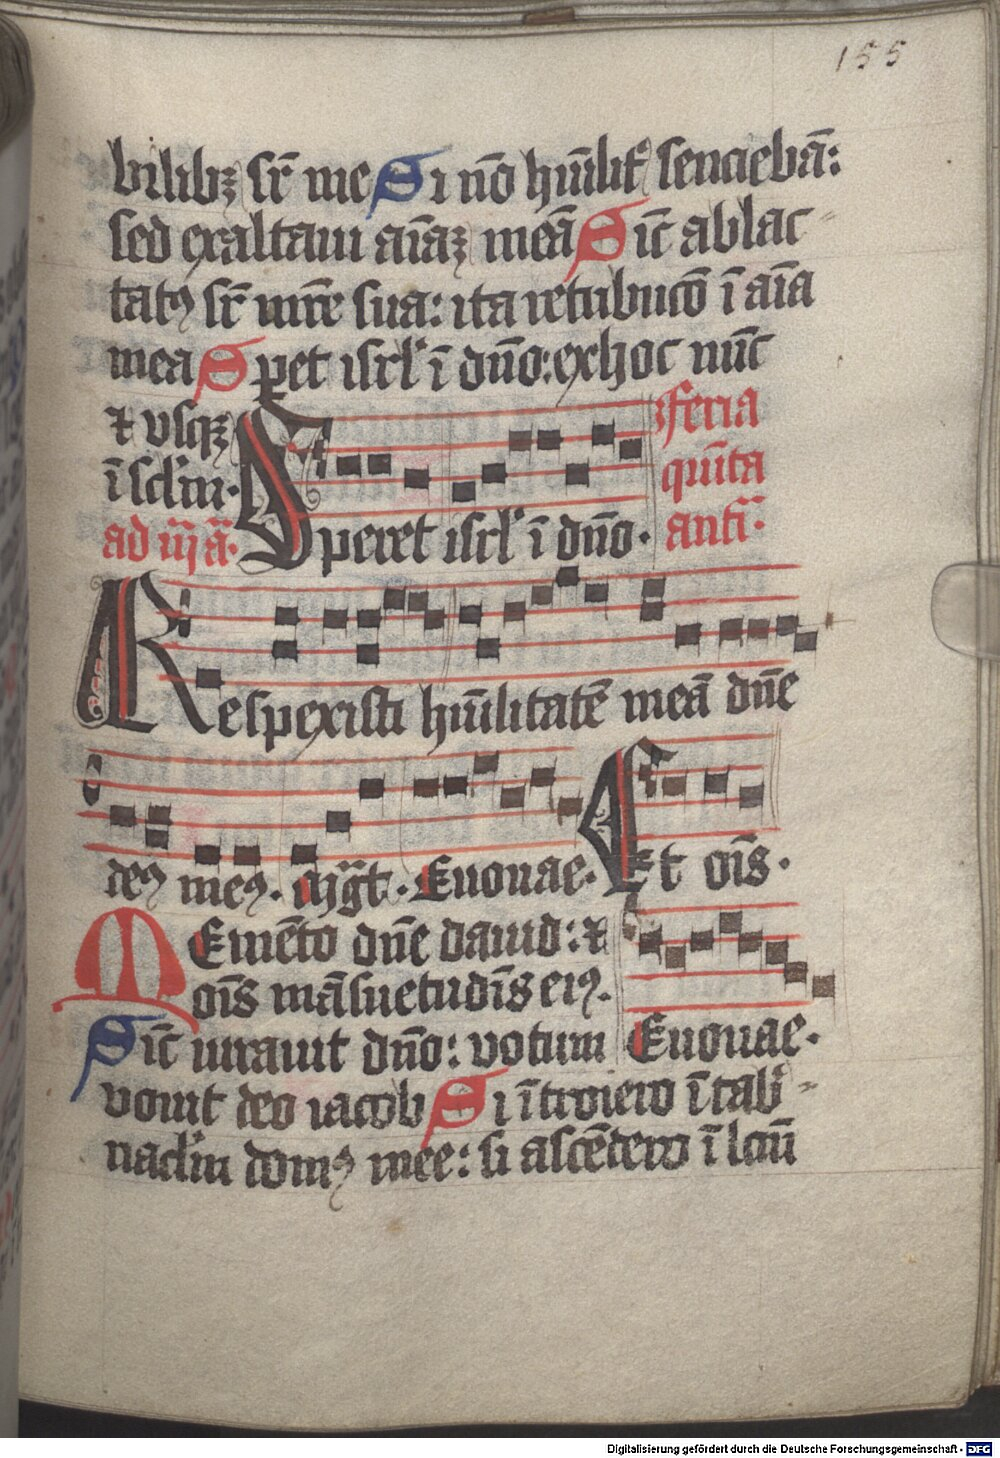 155
bilibꝫ sr̄ me Si nō hūilit᷑ sencieba᷑:
sed exaltaui aīaꝫ meā Sic̄ ablac
tatꝰ sr̄ mr̄e sua: ita retribuco᷑ ī aīa
mea Spet isrl' ī dn̄o: ex hoc nūc
⁊ usqꝫ
ī scl'm·
Speret isrl' ī dn̄o·
feria
quīta
anti᷑·
Respexisti hūilitatē meā dn̄e
deꝰ meꝰ· Euouae· Et oīs·
MEmēto dn̄e dauid: ⁊
oīs māsuetudīs eiꝰ·
Sic̄ iurauit dn̄o: votum Euouae·
vouit deo iacob Si ītroiero ī tab᷑
nacl'm domꝰ mee: si ascēdero ī lcūū
Digitalisierung gefördert durch die Deutsche Forschungsgemeinschaft - DFG